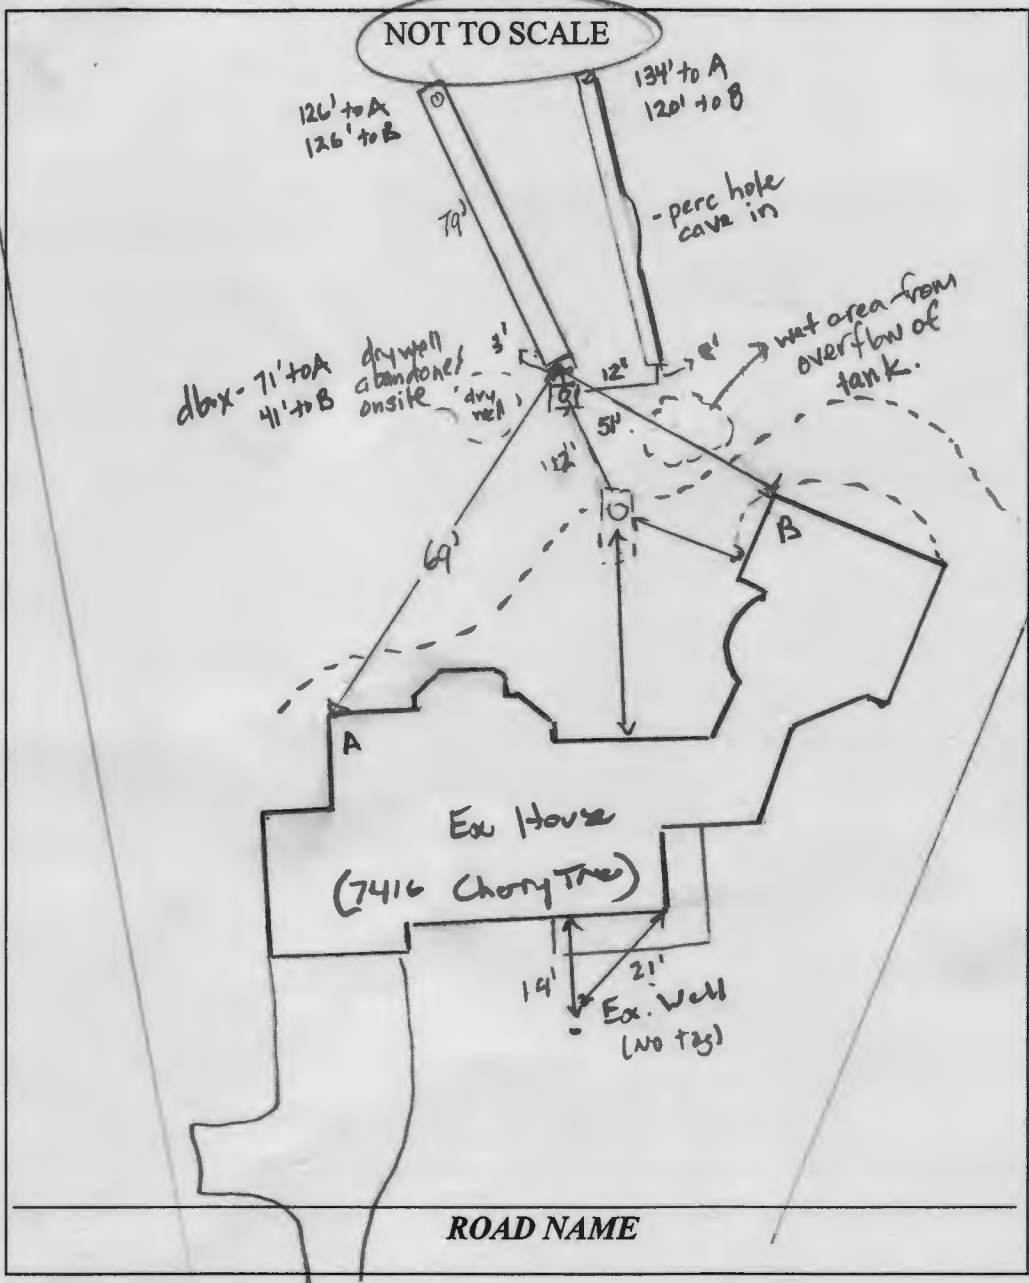 NOT TO SCALE
126' to A
126' to B
134' to A
120' to B
79'
- perc hole
cave in
wet area from
overflow of
tank.
3'
12'
dbox - 71' to A
41' to B
drywell
abandoned
onsite
dry
well
51'
12'
69'
B
A
Ex House
(7416 Cherry Tree)
14'
21'
Ex. Well
(No tag)
ROAD NAME